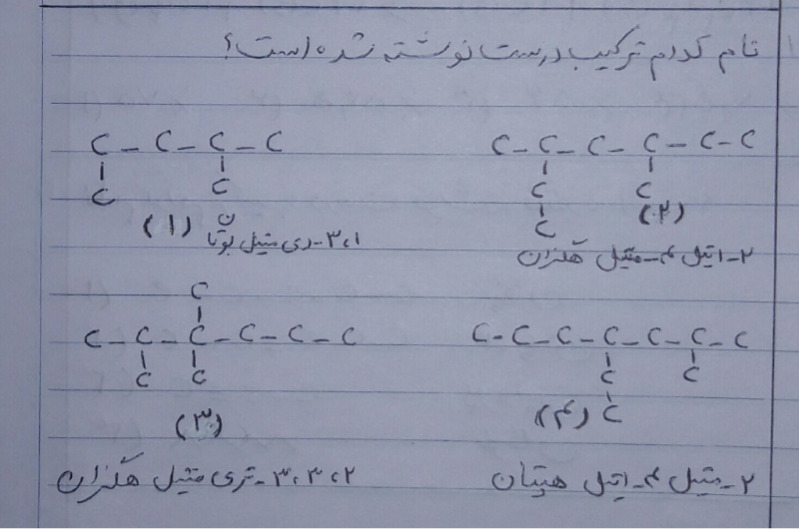 نام کدام ترکیب درست نوشته شده است؟
C - C - C - C
C C
(۱)
۱،۳-دی متیل بوتان
C - C - C - C - C - C
C C
C
(۲)
۲-اتیل ۴-متیل هگزان
C
C - C - C - C - C - C
C C
(۳)
۲،۳،۳-تری متیل هگزان
C - C - C - C - C - C - C
C C
C
(۴)
۲-متیل ۴-اتیل هپتان